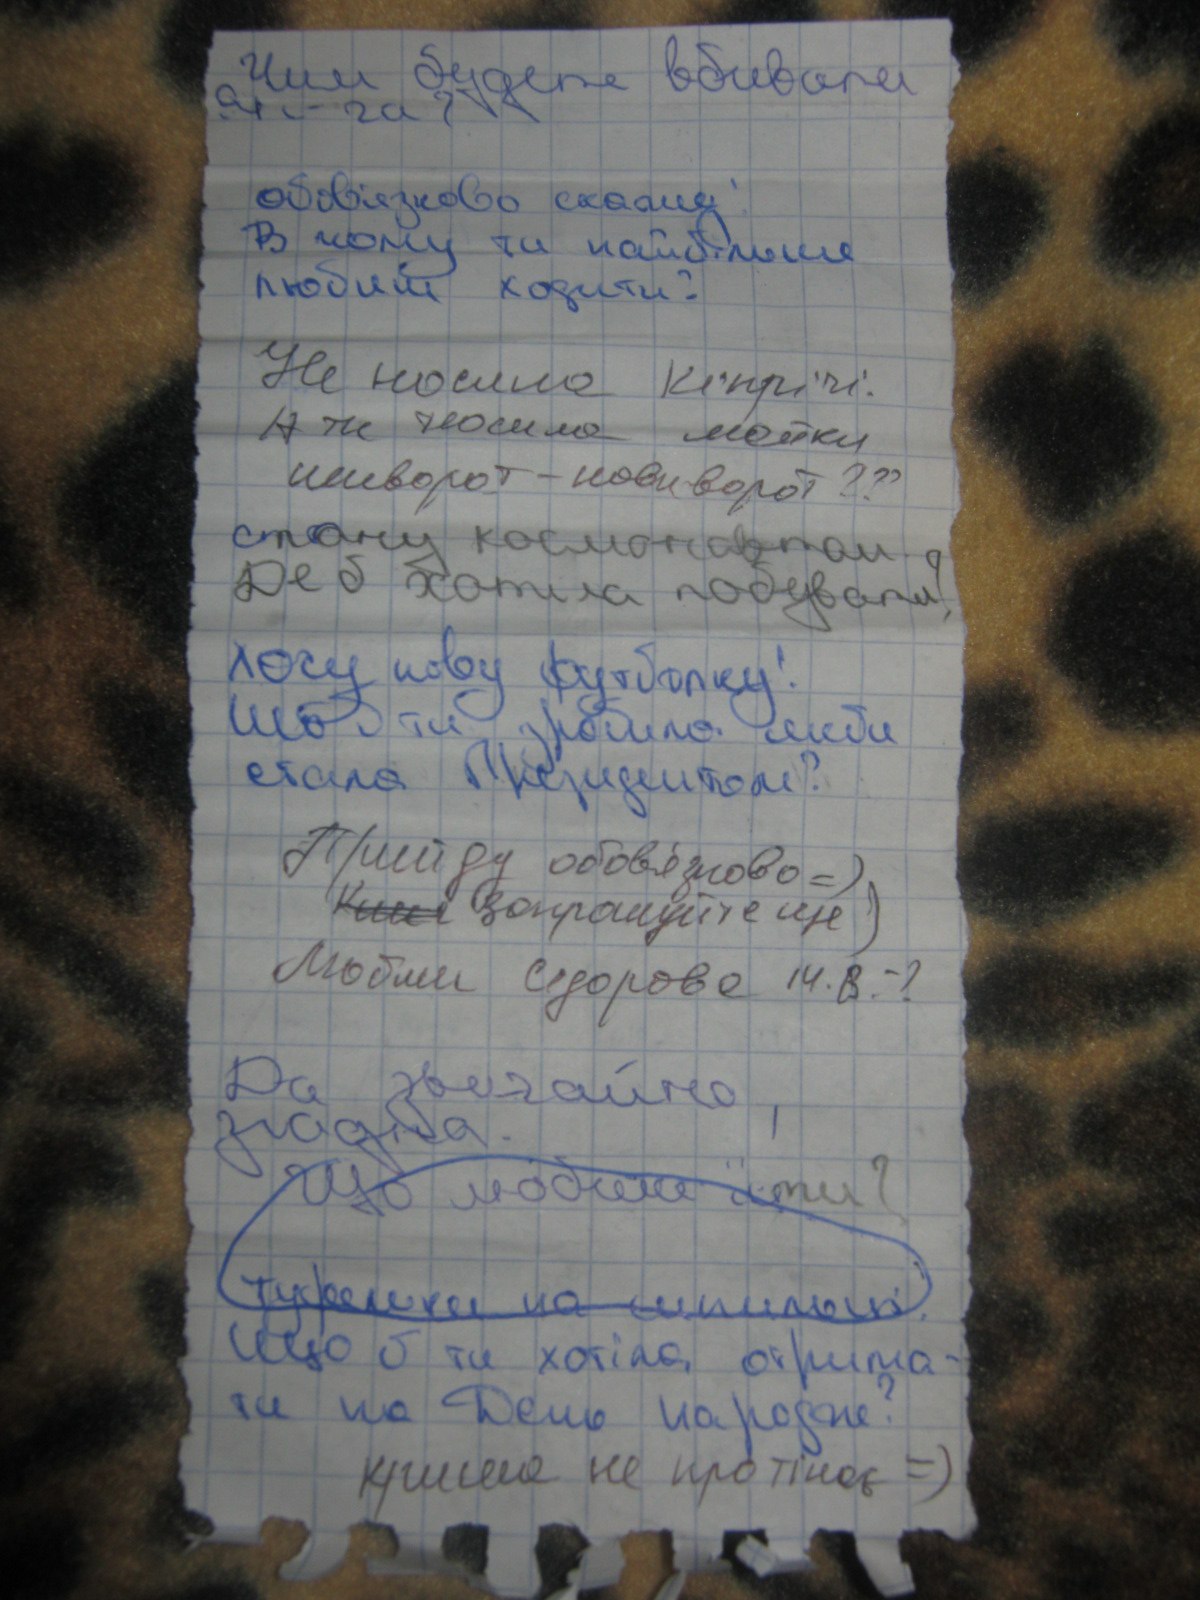 Чим будете вбивати
обов'язково скажу!
В чому ти найбільше
любиш ходити?
Не носила кіпрічі.
А ти носила майки
шиворот-навиворот???
стану космонавтом
Де б хотіла побувати?
Хочу нову футболку!
Що б ти зробила якби
стала Президентом?
Прийду обов'язково =)
Запрошуйте ще )
Любиш Сідорова М.В.-?
Да звичайно,
згадіва.
Що любиш їсти?
туфельки на шпильці.
Що б ти хотіла отрима-
ти на День народж?
криша не протікає =)